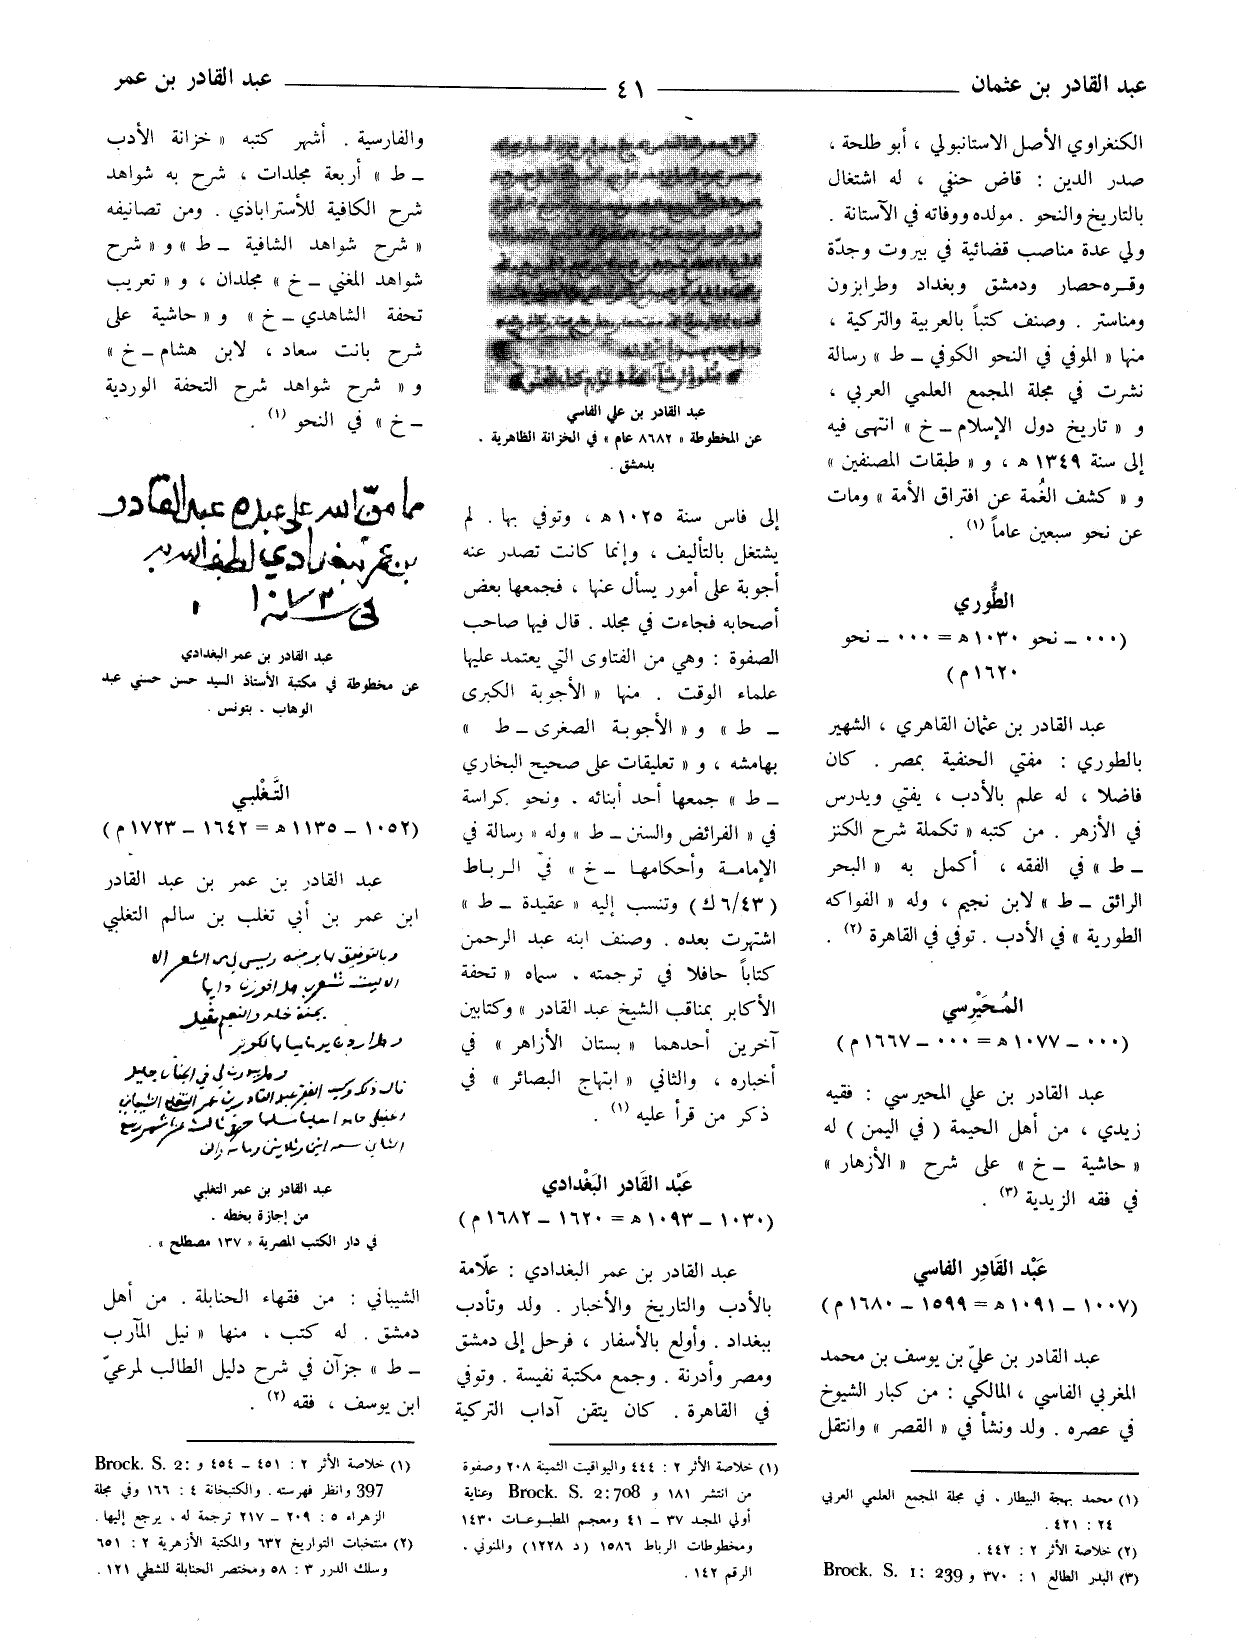 عبد القادر بن عثمان ــــ ٤١ ــــ عبد القادر بن عمر
الكنغراوي الأصل الاستانبولي ، أبو طلحة ،
صدر الدين : قاض حنفي ، له اشتغال
بالتاريخ والنحو . مولده ووفاته في الآستانة .
ولي عدة مناصب قضائية في بيروت وجدّة
وقره‌حصار ودمشق وبغداد وطرابزون
ومناستر . وصنف كتباً بالعربية والتركية ،
منها « الموفي في النحو الكوفي ـ ط » رسالة
نشرت في مجلة المجمع العلمي العربي ،
و « تاريخ دول الإسلام ـ خ » انتهى فيه
إلى سنة ١٣٤٩ ه ، و « طبقات المصنفين »
و « كشف الغُمة عن افتراق الأمة » ومات
عن نحو سبعين عاماً (١) .
الطُّوري
(٠٠٠ ـ نحو ١٠٣٠ ه = ٠٠٠ ـ نحو
١٦٢٠ م)
عبد القادر بن عثمان القاهري ، الشهير
بالطوري : مفتي الحنفية بمصر . كان
فاضلا ، له علم بالأدب ، يفتي ويدرس
في الأزهر . من كتبه « تكملة شرح الكنز
ـ ط » في الفقه ، أكمل به « البحر
الرائق ـ ط » لابن نجيم ، وله « الفواكه
الطورية » في الأدب . توفي في القاهرة (٢) .
المُحَيْرِسي
(٠٠٠ ـ ١٠٧٧ ه = ٠٠٠ ـ ١٦٦٧ م)
عبد القادر بن علي المحيرسي : فقيه
زيدي ، من أهل الحيمة ( في اليمن ) له
« حاشية ـ خ » على شرح « الأزهار »
في فقه الزيدية (٣) .
عَبْد القَادِر الفاسي
(١٠٠٧ ـ ١٠٩١ ه = ١٥٩٩ ـ ١٦٨٠ م)
عبد القادر بن عليّ بن يوسف بن محمد
المغربي الفاسي ، المالكي : من كبار الشيوخ
في عصره . ولد ونشأ في « القصر » وانتقل
(١) محمد بهجة البيطار ، في مجلة المجمع العلمي العربي
٢٤ : ٤٢١ .
(٢) خلاصة الأثر ٢ : ٤٤٢ .
(٣) البدر الطالع ١ : ٣٧٠ و Brock. S. 1: 239
عبد القادر بن علي الفاسي
عن المخطوطة « ٨٦٨٢ عام » في الخزانة الظاهرية .
بدمشق .
إلى فاس سنة ١٠٢٥ ه ، وتوفي بها . لم
يشتغل بالتأليف ، وإنما كانت تصدر عنه
أجوبة على أمور يسأل عنها ، فجمعها بعض
أصحابه فجاءت في مجلد . قال فيها صاحب
الصفوة : وهي من الفتاوى التي يعتمد عليها
علماء الوقت . منها « الأجوبة الكبرى
ـ ط » و « الأجوبة الصغرى ـ ط »
بهامشه ، و « تعليقات على صحيح البخاري
ـ ط » جمعها أحد أبنائه . ونحو كراسة
في « الفرائض والسنن ـ ط » وله « رسالة في
الإمامة وأحكامها ـ خ » في الرباط
(٦/٤٣ ك) وتنسب إليه « عقيدة ـ ط »
اشتهرت بعده . وصنف ابنه عبد الرحمن
كتاباً حافلا في ترجمته ، سماه « تحفة
الأكابر بمناقب الشيخ عبد القادر » وكتابين
آخرين أحدهما « بستان الأزاهر » في
أخباره ، والثاني « ابتهاج البصائر » في
ذكر من قرأ عليه (١) .
عَبْد القَادر البَغْدادي
(١٠٣٠ ـ ١٠٩٣ ه = ١٦٢٠ ـ ١٦٨٢ م)
عبد القادر بن عمر البغدادي : علّامة
بالأدب والتاريخ والأخبار . ولد وتأدب
ببغداد . وأولع بالأسفار ، فرحل إلى دمشق
ومصر وأدرنة . وجمع مكتبة نفيسة . وتوفي
في القاهرة . كان يتقن آداب التركية
(١) خلاصة الأثر ٢ : ٤٤٤ واليواقيت الثمينة ٢٠٨ وصفوة
من انتشر ١٨١ و Brock. S. 2:708 وعناية
أولي المجد ٣٧ ـ ٤١ ومعجم المطبوعات ١٤٣٠
ومخطوطات الرباط ١٥٨٦ (د ١٢٢٨) والمنوني .
الرقم ١٤٢ .
والفارسية . أشهر كتبه « خزانة الأدب
ـ ط » أربعة مجلدات ، شرح به شواهد
شرح الكافية للأسترابادي . ومن تصانيفه
« شرح شواهد الشافية ـ ط » و « شرح
شواهد المغني ـ خ » مجلدان ، و « تعريب
تحفة الشاهدي ـ خ » و « حاشية على
شرح بانت سعاد ، لابن هشام ـ خ »
و « شرح شواهد شرح التحفة الوردية
ـ خ » في النحو (١) .
مما منّ الله على عبده عبد القادر
بن عمر البغدادي لطف الله به
في سنة ١٠٧٣
عبد القادر بن عمر البغدادي
عن مخطوطة في مكتبة الأستاذ السيد حسن حسني عبد
الوهاب . بتونس .
التَّغْلبي
(١٠٥٢ ـ ١١٣٥ ه = ١٦٤٢ ـ ١٧٢٣ م)
عبد القادر بن عمر بن عبد القادر
ابن عمر بن أبي تغلب بن سالم التغلبي
عبد القادر بن عمر التغلبي
من إجازة بخطه .
في دار الكتب المصرية « ١٣٧ مصطلح » .
الشيباني : من فقهاء الحنابلة . من أهل
دمشق . له كتب ، منها « نيل المآرب
ـ ط » جزآن في شرح دليل الطالب لمرعيّ
ابن يوسف ، فقه (٢) .
(١) خلاصة الأثر ٢ : ٤٥١ ـ ٤٥٤ و Brock. S. 2:
397 وانظر فهرسته . والكتبخانة ٤ : ١٦٦ وفي مجلة
الزهراء ٥ : ٢٠٩ ـ ٢١٧ ترجمة له ، يرجع إليها .
(٢) منتخبات التواريخ ٦٣٢ والمكتبة الأزهرية ٢ : ٦٥١
وسلك الدرر ٣ : ٥٨ ومختصر الحنابلة للشطي ١٢١ .